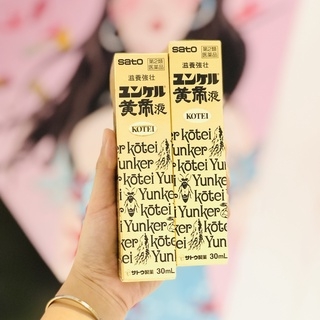 sato
第2類
医薬品
滋養強壮
ユンケル
黄帝液
KOTEI
kōtei Yunker
サトウ製薬 30mL
sato
第2類
医薬品
滋養強壮
ユンケル
黄帝液
KOTEI
kōtei Yunker
サトウ製薬 30mL